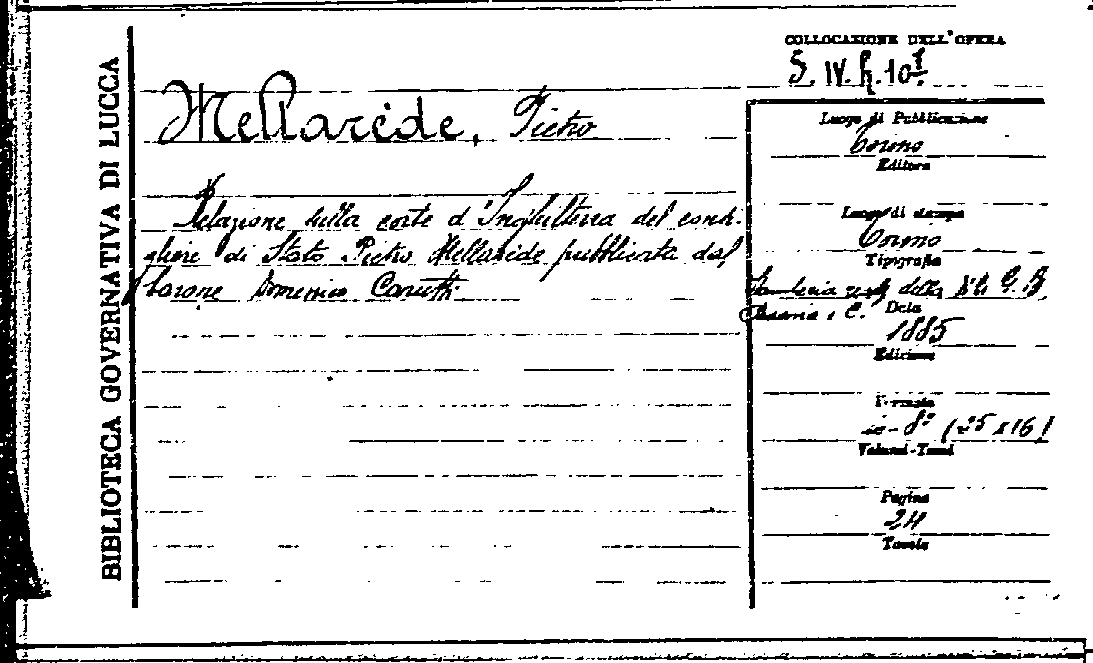 BIBLIOTECA GOVERNATIVA DI LUCCA
COLLOCAZIONE DELL'OPERA
S. IV. h. 10
Mellarède, Pietro
Relazione sulla corte d'Inghilterra del consi-
gliere di Stato Pietro Mellarède pubblicata dal
barone Domenico Carutti
Luogo di Pubblicazione
Torino
Editore
Luogo di stampa
Torino
Tipografia
Stamperia reale della Dita G. B.
Paravia e C.
Data
1885
Edizione
Formato
in-8° (25x16)
Volumi-Tomi
Pagine
24
Tavole